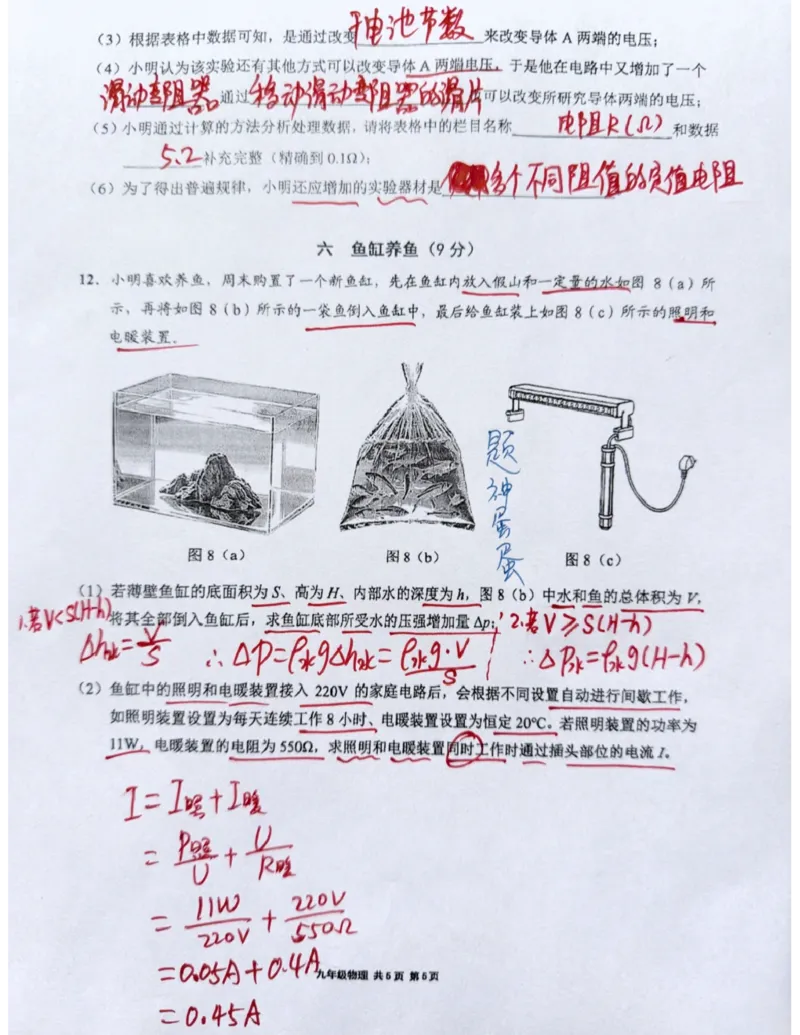 (3)根据表格中数据可知，是通过改变干电池节数来改变导体 A 两端的电压；
(4)小明认为该实验还有其他方式可以改变导体 A 两端电压，于是他在电路中又增加了一个
滑动变阻器。通过移动滑动变阻器的滑片可以改变所研究导体两端的电压；
(5)小明通过计算的方法分析处理数据，请将表格中的栏目名称电阻R(Ω)和数据
5.2补充完整（精确到 0.1Ω）；
(6)为了得出普遍规律，小明还应增加的实验器材是多个不同阻值的定值电阻
六 鱼缸养鱼（9 分）
12. 小明喜欢养鱼，周末购置了一个新鱼缸，先在鱼缸内放入假山和一定量的水如图 8（a）所
示，再将如图 8（b）所示的一袋鱼倒入鱼缸中，最后给鱼缸装上如图 8（c）所示的照明和
电暖装置。
题神蛋蛋
图 8（a）
图 8（b）
图 8（c）
(1) 若薄壁鱼缸的底面积为 S、高为 H、内部水的深度为 h，图 8（b）中水和鱼的总体积为 V，
将其全部倒入鱼缸后，求鱼缸底部所受水的压强增加量 Δp；
1.若V<S(H-h)
Δh水=V/S
∴Δp=ρ水gΔh水=ρ水g·V/S
2.若V≥S(H-h)
∴Δp水=ρ水g(H-h)
(2) 鱼缸中的照明和电暖装置接入 220V 的家庭电路后，会根据不同设置自动进行间歇工作，
如照明装置设置为每天连续工作 8 小时、电暖装置设置为恒定 20℃。若照明装置的功率为
11W，电暖装置的电阻为 550Ω，求照明和电暖装置同时工作时通过插头部位的电流 I。
I=I照+I暖
=P照/U+U/R暖
=11W/220V+220V/550Ω
=0.05A+0.4A
=0.45A
九年级物理 共 6 页 第 5 页